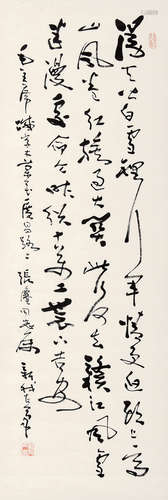 漫天皆白雪裡行軍情更迫頭上高
山風卷紅旗過大關此行何去贛江風雪
迷漫處命令昨頒十萬工農下吉安
毛主席減字木蘭花廣昌路上 張同志屬 新我左筆